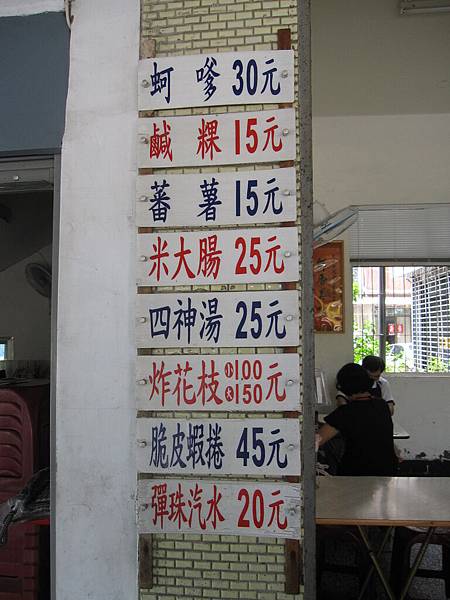 蚵嗲 30元
鹹粿 15元
蕃薯 15元
米大腸 25元
四神湯 25元
炸花枝 小100 大150 元
脆皮蝦捲 45元
彈珠汽水 20元